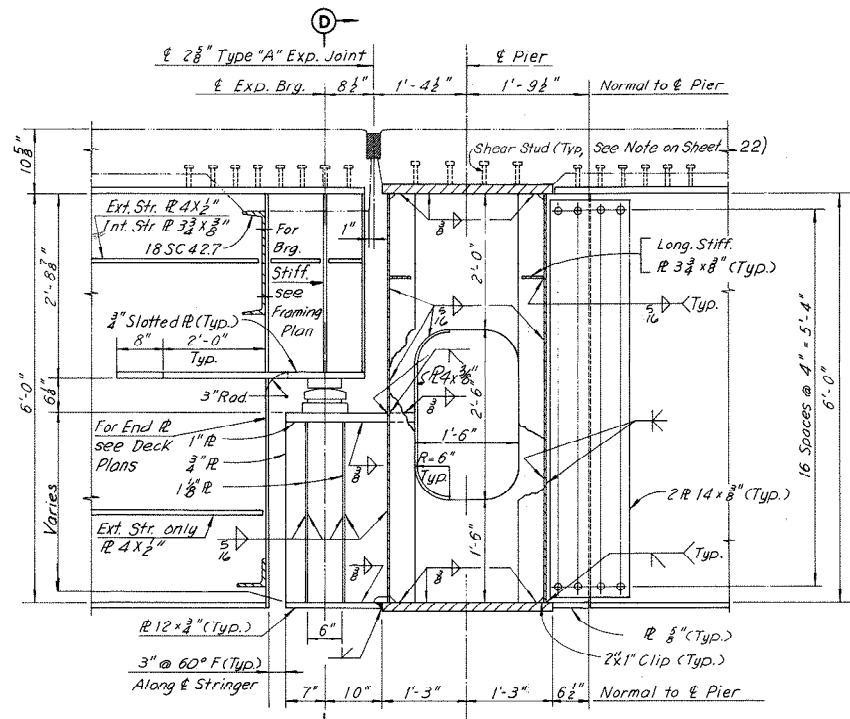 D
℄ 2 5/8" Type "A" Exp. Joint
℄ Pier
℄ Exp. Brg.
8 1/2"
1'-4 1/2"
1'-9 1/2"
Normal to ℄ Pier
10 5/8"
Shear Stud (Typ, See Note on Sheet 22)
Ext. Str. ⅊ 4 x 1/2"
Int. Str ⅊ 3 3/4 x 3/8"
18 SC 42.7
For
Brg.
Stiff.
see
Framing
Plan
1"
3/8
2'-0"
Long. Stiff.
⅊ 3 3/4 x 3/8" (Typ.)
2'-8 7/8"
5/16
5/16
Typ.
3/4" Slotted ⅊ (Typ.)
8"
2'-0"
Typ.
6'-0"
6 1/8"
3" Rad
⅊ 4 x 3/8"
3/8
2'-6"
16 Spaces @ 4" = 5'-4"
6'-0"
For End ⅊
see Deck
Plans
1" ⅊
3/4" ⅊
1 1/8" ⅊
3/8
1'-6"
R=6"
Typ.
2 ⅊ 14 x 3/8" (Typ.)
Varies
Ext. Str. only
⅊ 4 x 1/2"
5/16
3/8
3/8
1'-6"
Typ.
⅊ 12 x 3/4" (Typ.)
6"
⅊ 5/8" (Typ.)
2"x1" Clip (Typ.)
3" @ 60° F (Typ.)
Along ℄ Stringer
7"
10"
1'-3"
1'-3"
6 1/2"
Normal to ℄ Pier